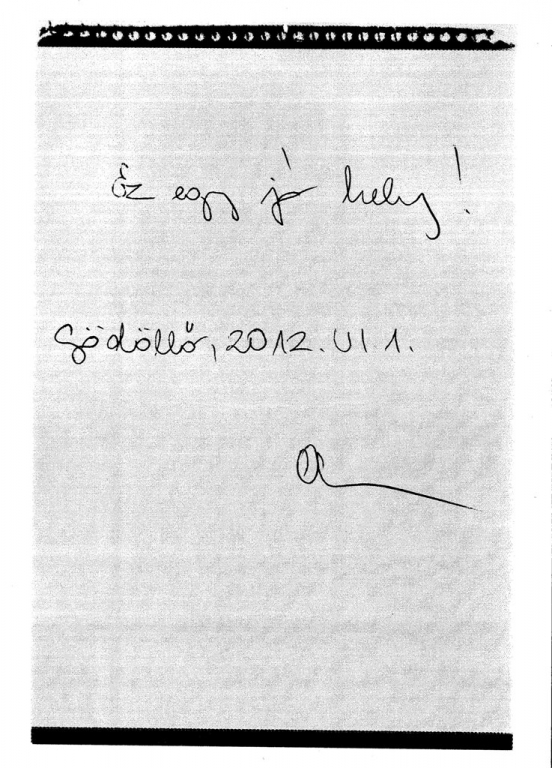 Ez egy jó hely!
Gödöllő, 2012. VI. 1.